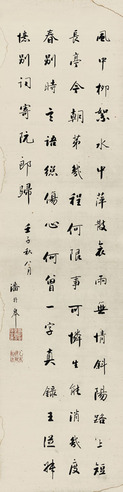 風中柳絮水中萍散聚兩無情斜陽路上短
長亭今朝第幾程何限事可憐生能消幾度
春別時言語總傷心何曾一字真錄王
憶別詞寄阮郎歸
壬子秋八月
潘齡皋